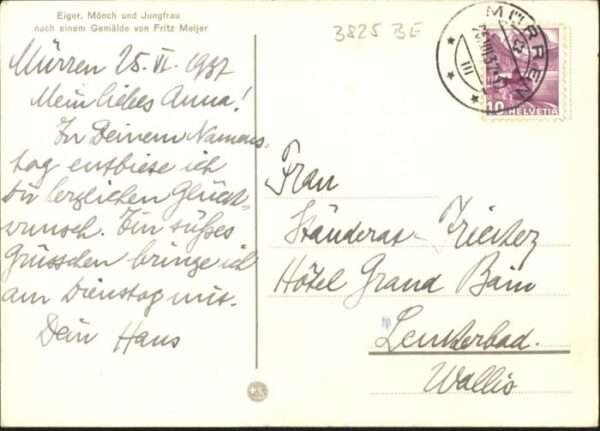 Eiger, Mönch und Jungfrau
nach einem Gemälde von Fritz Meijer
3825 BE
MÜRREN
10 HELVETIA
Mürren 25. VI. 1937
Mein liebes Anna!
In Deinem Namens-
tag entbiese ich
Dir herzlichen Glück-
wunsch. Ein süßes
Grüsschen bringe ich
am Dienstag mit.
Dein Hans
Frau
Ständerat
Hôtel Grand Bain
Leukerbad.
Wallis